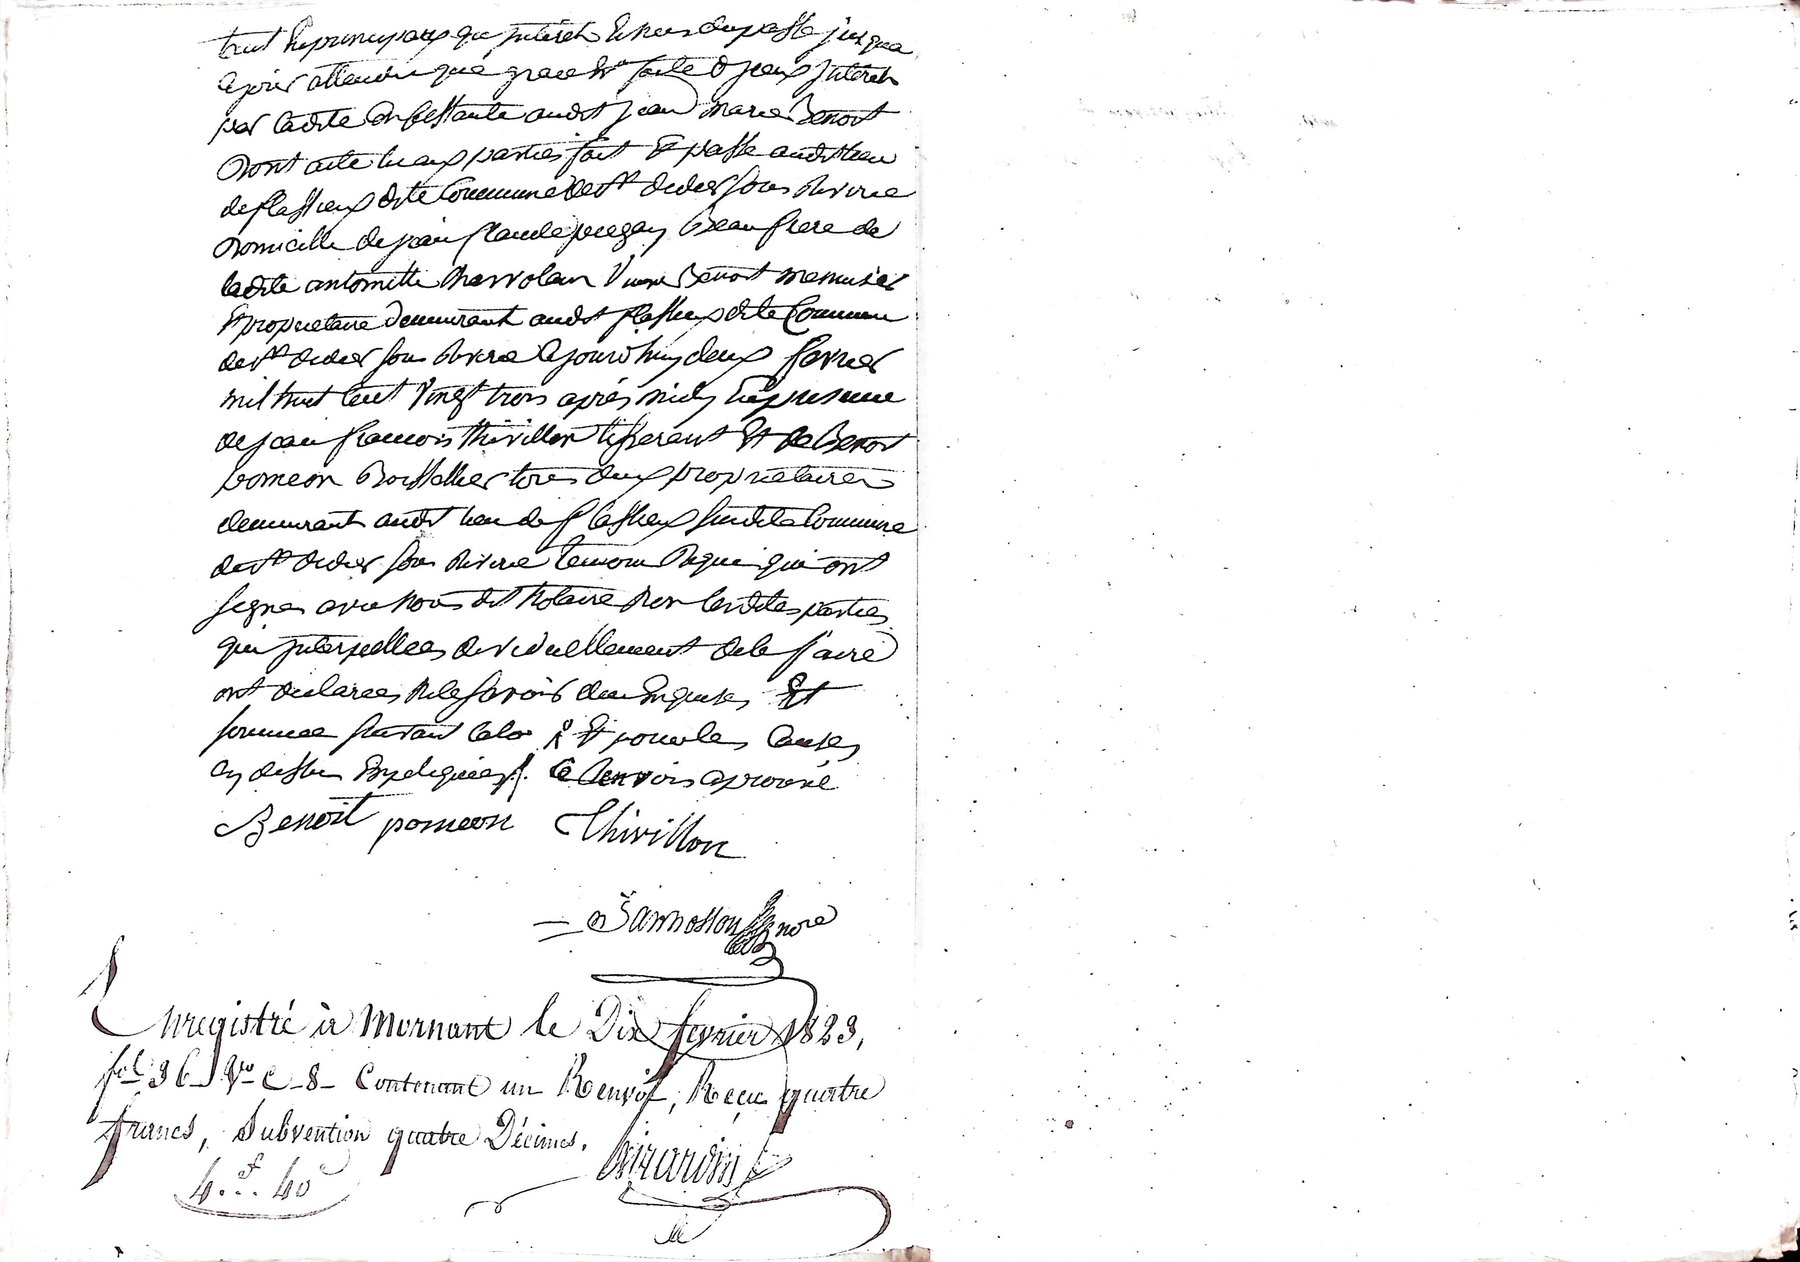 tant le principaux que jnterets Echus du passé jusqua
ce jour attendu que grace Est faite d jceux jnterets
par ladite Confessante audit jean marie Benoit
dont acte lu aux parties fait Et passé audit lieu
de flassieux dite Commune de St didier sous Riverie
Domicille de jean Claude beau frere de
ladite antoinette Vve Benoit menusier
Et proprietaire demeurant audit flassieux dite Commune
de St didier sous Riverie Cejourdhuy deux fevrier
mil huit Cent Vingt trois après midy En presence
de jean francois thivillon tisserant Et de Benoit
pomeon tous deux proprietaires
demeurants audit lieu de flassieux susdite Commune
de St didier sous Riverie temoins Requis qui ont
signes avec Nous dit Notaire Non lesdites parties
qui jnterpellees de le faire
ont declarees Ne le savoir de ce Enquises Et
sommees suivant la loi Et pour les Causes
cy dessus Expliquées. Ce Renvois aprouvé
Benoit pomeon Thivillon
nore
Enregistré à Mornant le Dix fevrier 1823,
fol 36 Vo C 8 Contenant un Renvoi, Reçu quatre
francs, Subvention quatre Décimes.
4f.. 40c Girardin